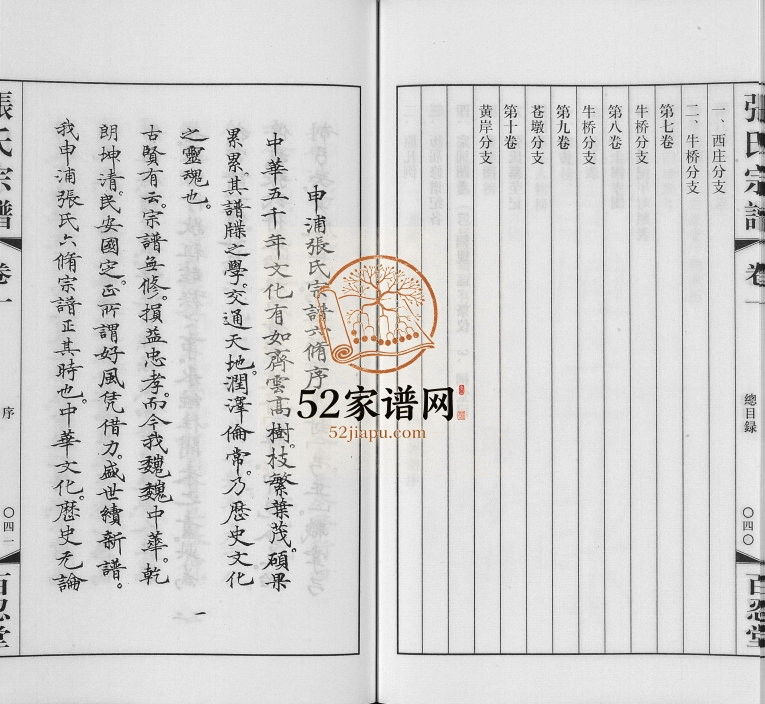 張氏宗譜 卷一
總目録
〇四〇
百忍堂
一、西庄分支
二、牛桥分支
第七卷
牛桥分支
第八卷
牛桥分支
第九卷
苍墩分支
第十卷
黄岸分支
申浦張氏宗譜六脩序
中華五千年文化有如齊雲高樹。枝繁葉茂。碩果
累累。其譜牒之學。交通天地。潤澤倫常。乃歷史文化
之靈魂也。
古賢有云。宗譜無修。損益忠孝。而今我巍巍中華。乾
朗坤清。民安國定。正所謂好風凭借力。盛世續新譜。
我申浦張氏六脩宗譜正其時也。中華文化。歷史无論
一
張氏宗譜 卷一
序
〇四一
百忍堂
52家谱网
52jiapu.com